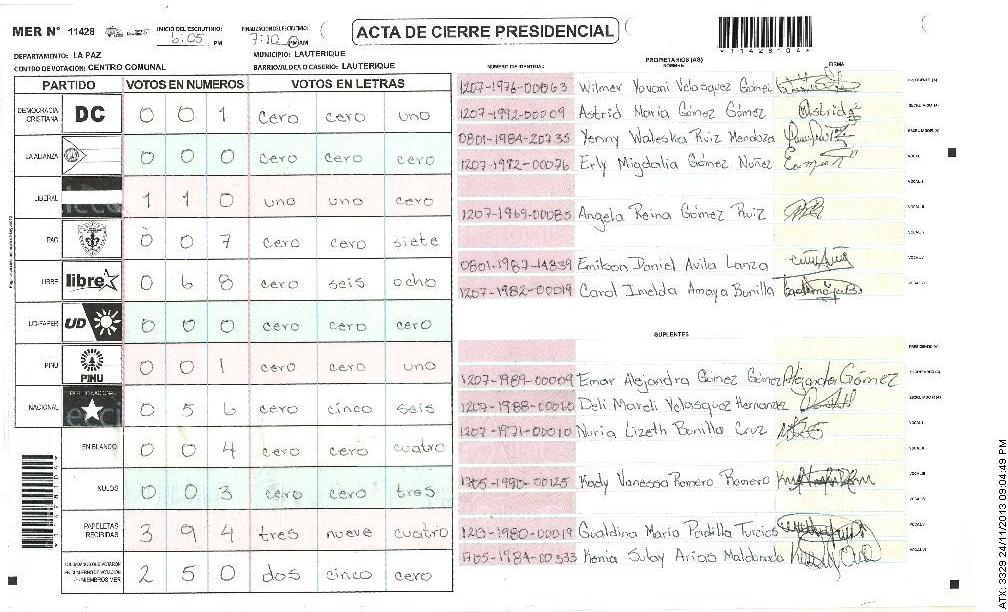 MER N° 11428 INICIO DEL ESCRUTINIO: 6:05 PM FINALIZACION ESCRUTINIO: 7:10 PM AM ACTA DE CIERRE PRESIDENCIAL
DEPARTAMENTO: LA PAZ MUNICIPIO: LAUTERIQUE
CENTRO DE VOTACION: CENTRO COMUNAL BARRIO/ALDEA O CASERIO: LAUTERIQUE
PARTIDO VOTOS EN NUMEROS VOTOS EN LETRAS
DEMOCRACIA CRISTIANA DC 0 0 1 cero cero uno
LA ALIANZA 0 0 0 cero cero cero
LIBERAL 1 1 0 uno uno cero
PAC 0 0 7 cero cero siete
LIBRE libre 0 6 8 cero seis ocho
UD-FAPER UD 0 0 0 cero cero cero
PINU PINU 0 0 1 cero cero uno
NACIONAL 0 5 6 cero cinco seis
EN BLANCO 0 0 4 cero cero cuatro
NULOS 0 0 3 cero cero tres
PAPELETAS RECIBIDAS 3 9 4 tres nueve cuatro
2 5 0 dos cinco cero
NUMERO DE IDENTIDAD PROPIETARIOS (AS) NOMBRE FIRMA
1207-1976-00063 Wilmer Yovani Velasquez Gómez
1207-1992-00009 Astrid Maria Gómez Gómez Astrid
0801-1984-20735 Yenny Waleska Ruiz Mendoza
1207-1992-00076 Erly Migdalia Gómez Nuñez
1207-1969-00085 Angela Reina Gómez Ruiz
0801-1987-14839 Emilson Daniel Avila Lanza
1207-1982-00019 Carol Imelda Amaya Bonilla
SUPLENTES
1207-1989-00009 Emar Alejandra Gómez Gómez Alejandra Gómez
1207-1988-00010 Deli Mareli Velasquez Hernandez
1207-1971-00010 Nuria Lizeth Bonilla Cruz
1705-1990-00125 Kady Vanessa Romero Romero
1213-1980-00019 Gualdina Maria Padilla Turcios
1705-1984-00533 Kenia Suloy Arias Maldonado
ATX: 3329 24/11/2013 09:04:49 PM